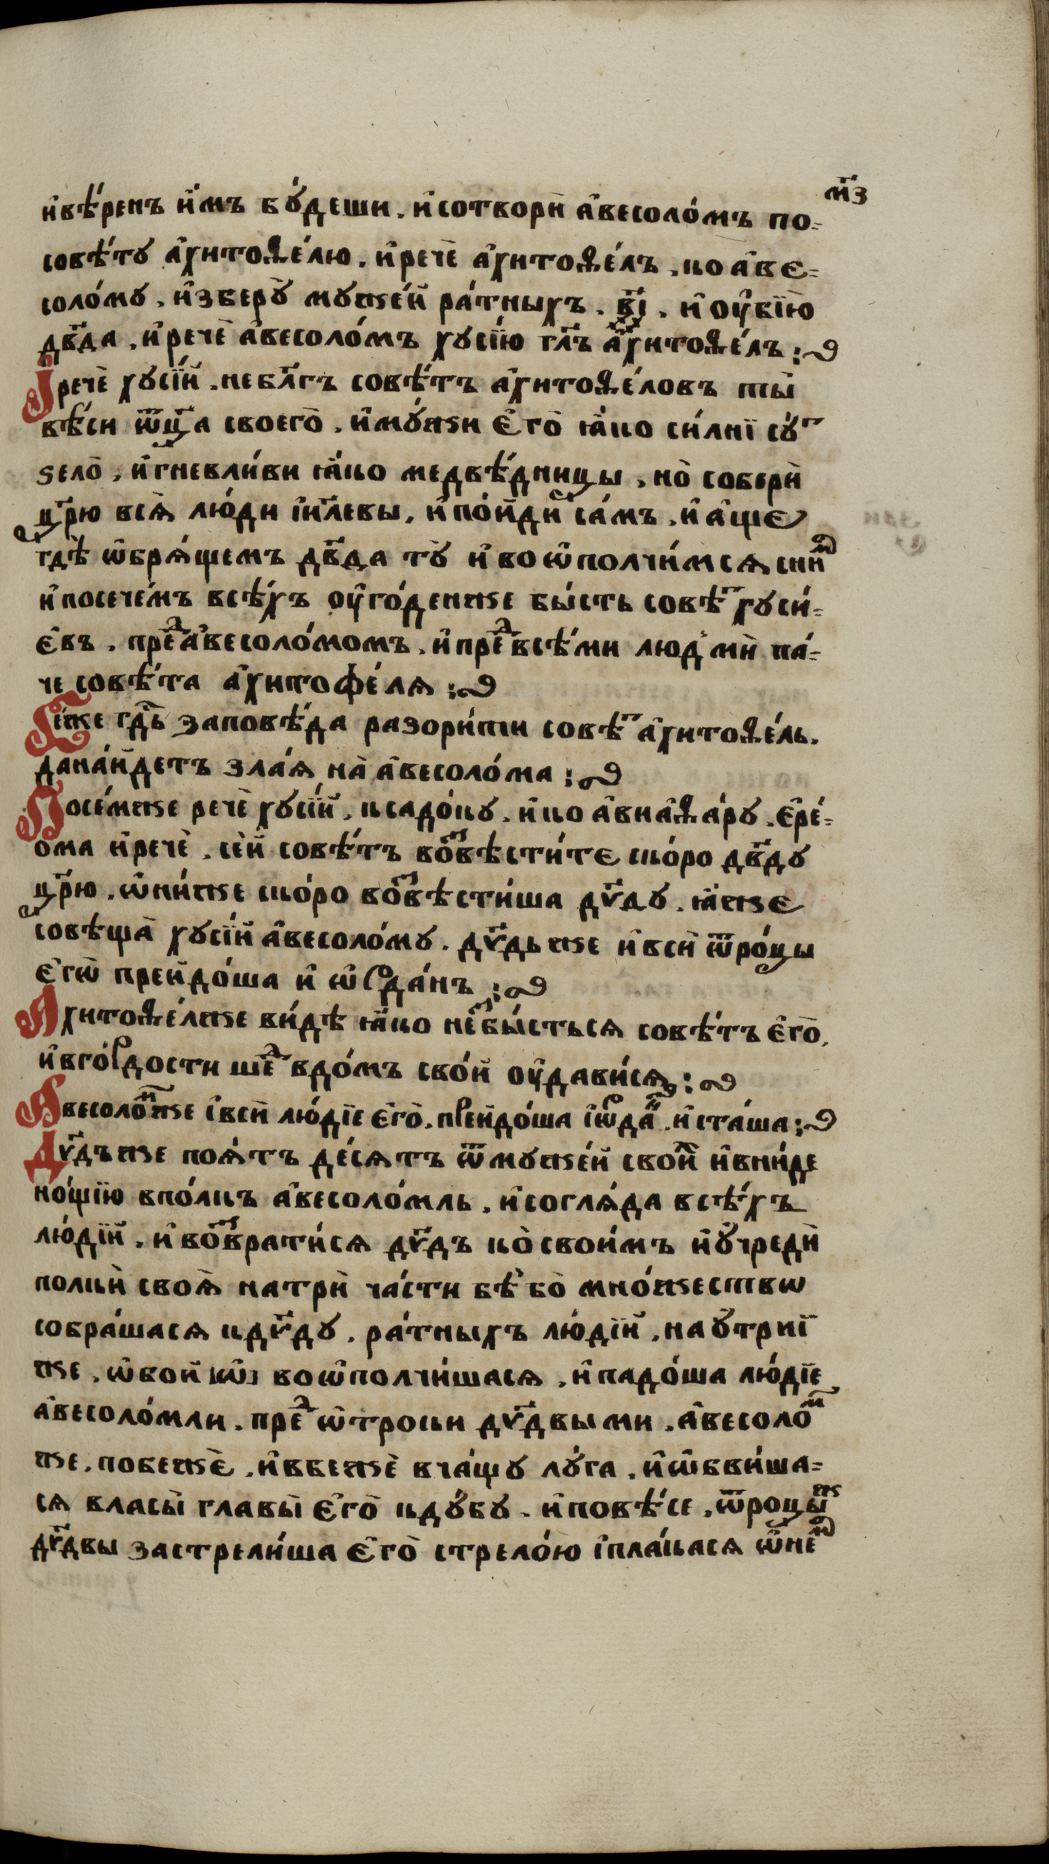 м҃з
и҆вѣ́ренъ и҆́мъ бꙋ́деши . и҆сотворѝ а҆весоло́мъ по=
совѣ́тꙋ а҆хитоѳе́лю . и҆речѐ а҆хитоѳе́лъ . ко а҆ве=
соло́мꙋ . и҆зберꙋ̀ мꙋже́й ра́тныхъ . в҃і . и҆ ᲂу҆бїю̀
дв҃да . и҆ речѐ а҆весоло́мъ хꙋсі́ю гл҃ъ а҆хитоѳе́лъ :
И҆речѐ хꙋсі́й . небл҃гъ совѣ́тъ а҆хитоѳе́ловъ ты̀
вѣ́си ѿц҃а своего̀ . и҆мꙋ́жи є҆го̀ ꙗ҆́ко си́лнї сꙋ́т
ѕело̀ , и҆гневли́ви ꙗ҆́ко медвѣ́дницы , но̀ соберѝ
цр҃ю всѧ̀ лю́ди і҆и҃левы , и҆ по́йди са́мъ , и҆ а҆́ще
гдѣ̀ ѡ҆брѧ́щемъ дв҃да тꙋ̀ и҆ воѡ҆полчи́мсѧ сни́м
и҆посече́мъ всѣ́хъ ᲂу҆го́денже бы́сть совѣ́т хꙋсі́=
євъ . пред а҆весоло́момъ . и҆пред всѣ́ми людмѝ па́=
че совѣ́та а҆хитофе́лѧ :
Се́же гд҃ь заповѣ́да разори́ти совѣ́т а҆хитоѳе́ль .
дана́йдетъ зла́ѧ на̀ а҆весоло́ма :
Посе́мже речѐ хꙋсі́й . ксадо́кꙋ . и҆ко а҆виаѳа́рꙋ . є҆ре́=
ома и҆речѐ . се́й совѣ́тъ возвѣсти́те ско́ро дв҃дꙋ
цр҃ю . ѡ҆ни́же ско́ро возвѣсти́ша дв҃дꙋ . ꙗ҆́же
совѣща̀ хꙋсі́й а҆весоло́мꙋ . дв҃дъже и҆всѝ ѿро́цы
є҆гѡ̀ прейдо́ша и҆ ѡ҆рда́нъ :
Ахитоѳе́лже ви́дѣ ꙗ҆́ко незбы́стьсѧ совѣ́тъ є҆го̀ ,
и҆вго́рдости шед вдо́мъ сво́й ᲂу҆дави́сѧ :
Авесоло́мже і҆всѝ лю́дїе є҆го̀ . прейдо́ша і҆ѡрда́н . и҆ста́ша :
Дв҃дъже поѧ́тъ де́сѧтъ ѿмꙋже́й свои́х и҆вни́де
но́щїю впо́лкъ а҆весоло́мль . и҆соглѧ́да всѣ́хъ
лю́дїй . и҆ возврати́сѧ дв҃дъ ко̀свои́мъ и҆ᲂу҆чредѝ
полкѝ своѧ̀ натрѝ ча́сти бѣ̀ бо̀ мно́жествѡ
собра́шасѧ кдв҃дꙋ . ра́тныхъ лю́дїй , наᲂу҆́трнї
же . ѡ҆бои [ѡ҆] воѡ҆полчи́шасѧ , и҆падо́ша лю́дїе
а҆весоло́мли . пред ѡ҆́троки дв҃двыми . а҆весоло́м
же . побежѐ . и҆вбежѐ вча́щꙋ лꙋ́га . и҆ѡ҆бви́ша=
сѧ власы̀ главы̀ є҆го̀ кдꙋ́бꙋ . и҆повѣ́се . ѿроцы́ж
дв҃двы застрели́ша є҆го̀ стрело́ю і҆пла́касѧ ѡ҆не́м